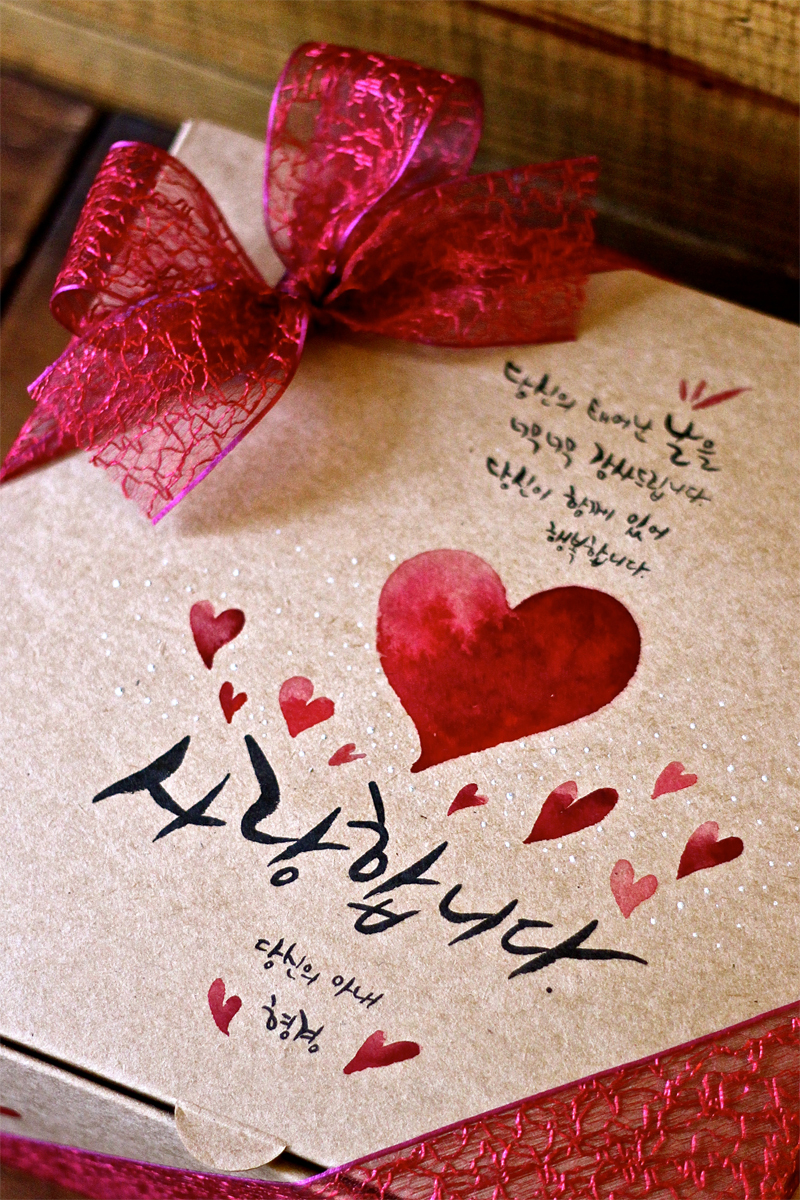 당신의 태어난 날을
너무너무 감사드립니다.
당신이 함께 있어
행복합니다.
사랑합니다.
당신의 아내